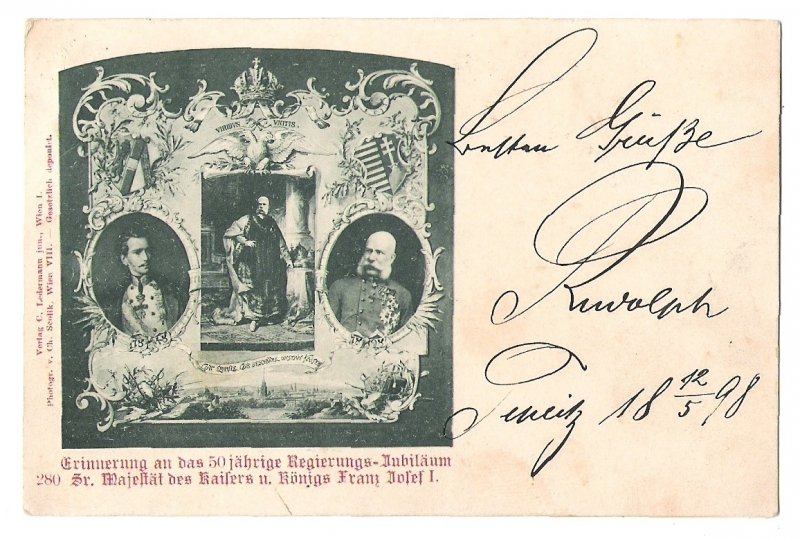 Verlag C. Ledermann jun., Wien I.
Photogr. v. Ch. Scolik, Wien VIII. — Gesetzlich deponirt.
VIRIBUS UNITIS
1848
1898
Gott erhalte, Gott beschütze, unsern Kaiser
Erinnerung an das 50 jährige Regierungs-Jubiläum
280 Sr. Majestät des Kaisers u. Königs Franz Josef I.
Besten Grüße
Rudolph
18 12/5 98